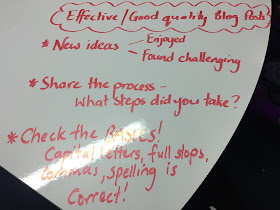 Effective/Good quality Blog Posts
* New ideas - Enjoyed
- Found challenging
* Share the process -
What steps did you take?
* Check the BASICS!
Capital letters, full stops,
commas, spelling is
correct!